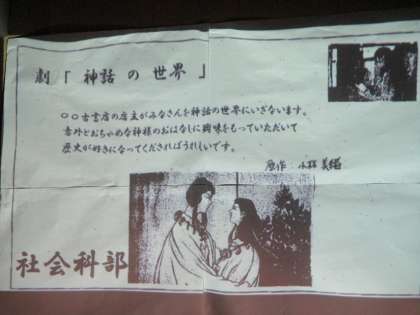 劇「神話の世界」
○○古書店の店主がみなさんを神話の世界にいざないます。
意外とおちゃめな神様のおはなしに興味をもっていただいて
歴史が好きになってくださればうれしいです。
原作 小林美
社会科部